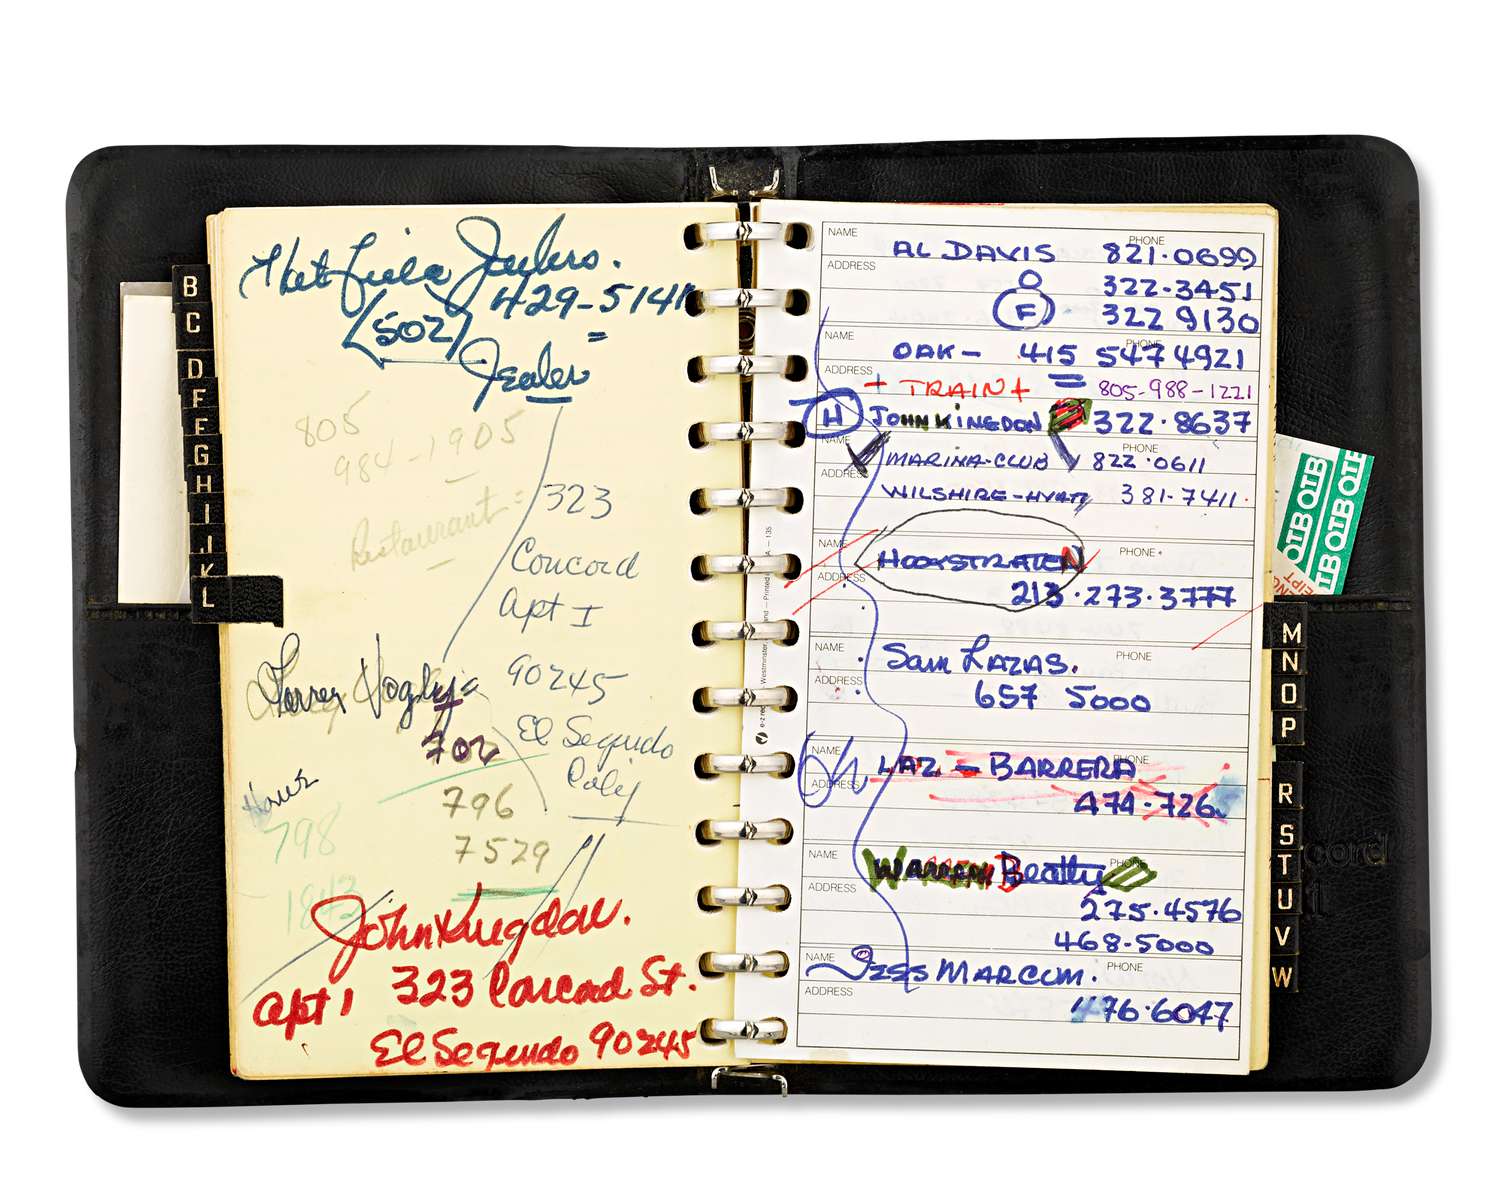 Jewlers.
429-5141
(502)
=
Jealer
805
984-1905
Restaurant =
323
Concord
Apt I
90245
El Segundo
Calif
702
796
7529
Hours
798
1843
John Kingdon.
323 Concord St.
Apt 1
El Segundo 90245
B
C
D
E
F
G
H
I
J
K
L
NAME
PHONE
AL DAVIS 821·0699
ADDRESS
O 322·3451
F 322 9130
NAME
PHONE
OAK - 415 547 4921
ADDRESS
+ TRAIN + 805-988-1221
H JOHN KINGDON 322·8637
NAME
PHONE
MARINA-CLUB 822·0611
ADDRESS
WILSHIRE-HYATT 381-7411·
NAME
PHONE
HOOYSTRATEN
ADDRESS
213·273·3777
NAME
PHONE
Sam LAZAS.
ADDRESS
657 5000
NAME
PHONE
LAZ - BARRERA
ADDRESS
474·726
NAME
PHONE
Warren Beatty
ADDRESS
275·4576
468-5000
NAME
PHONE
JESS MARCUM.
ADDRESS
476·6047
M
N
O
P
R
S
T
U
V
W
OTB OTB
OTB OTB